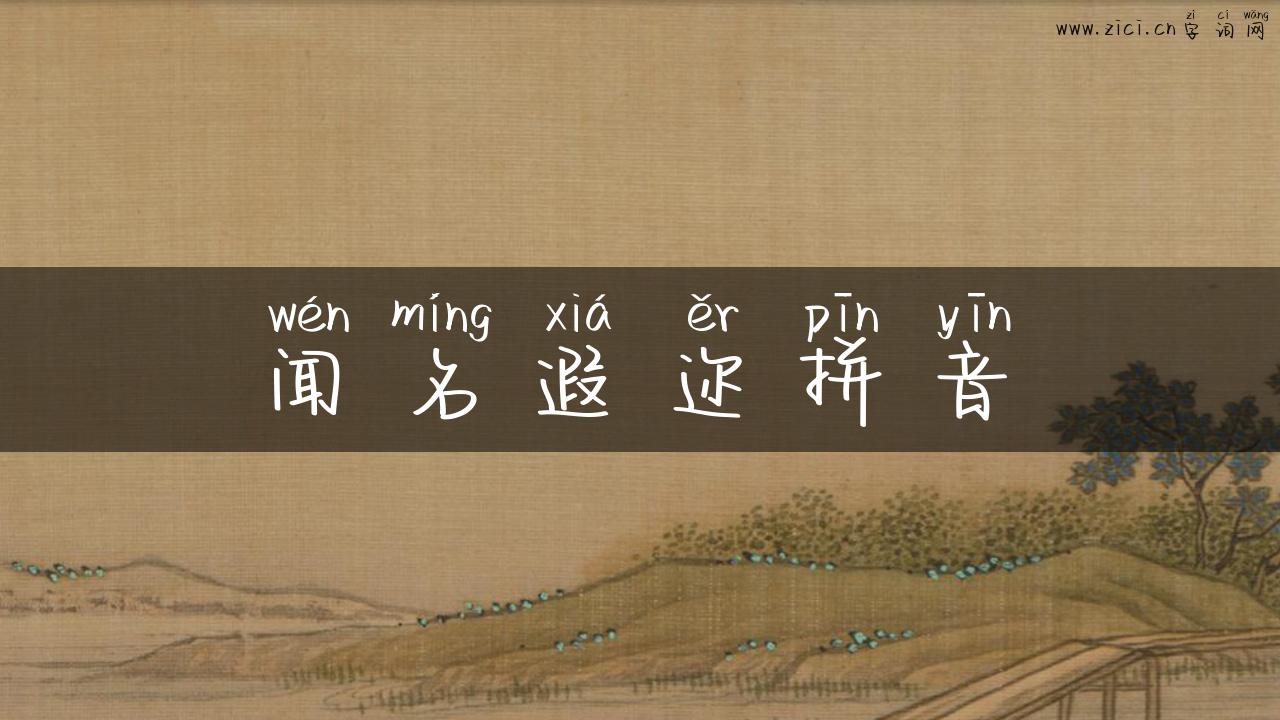 zì cí wǎng
www.zici.cn字词网
wén míng xiá ěr pīn yīn
闻名遐迩拼音